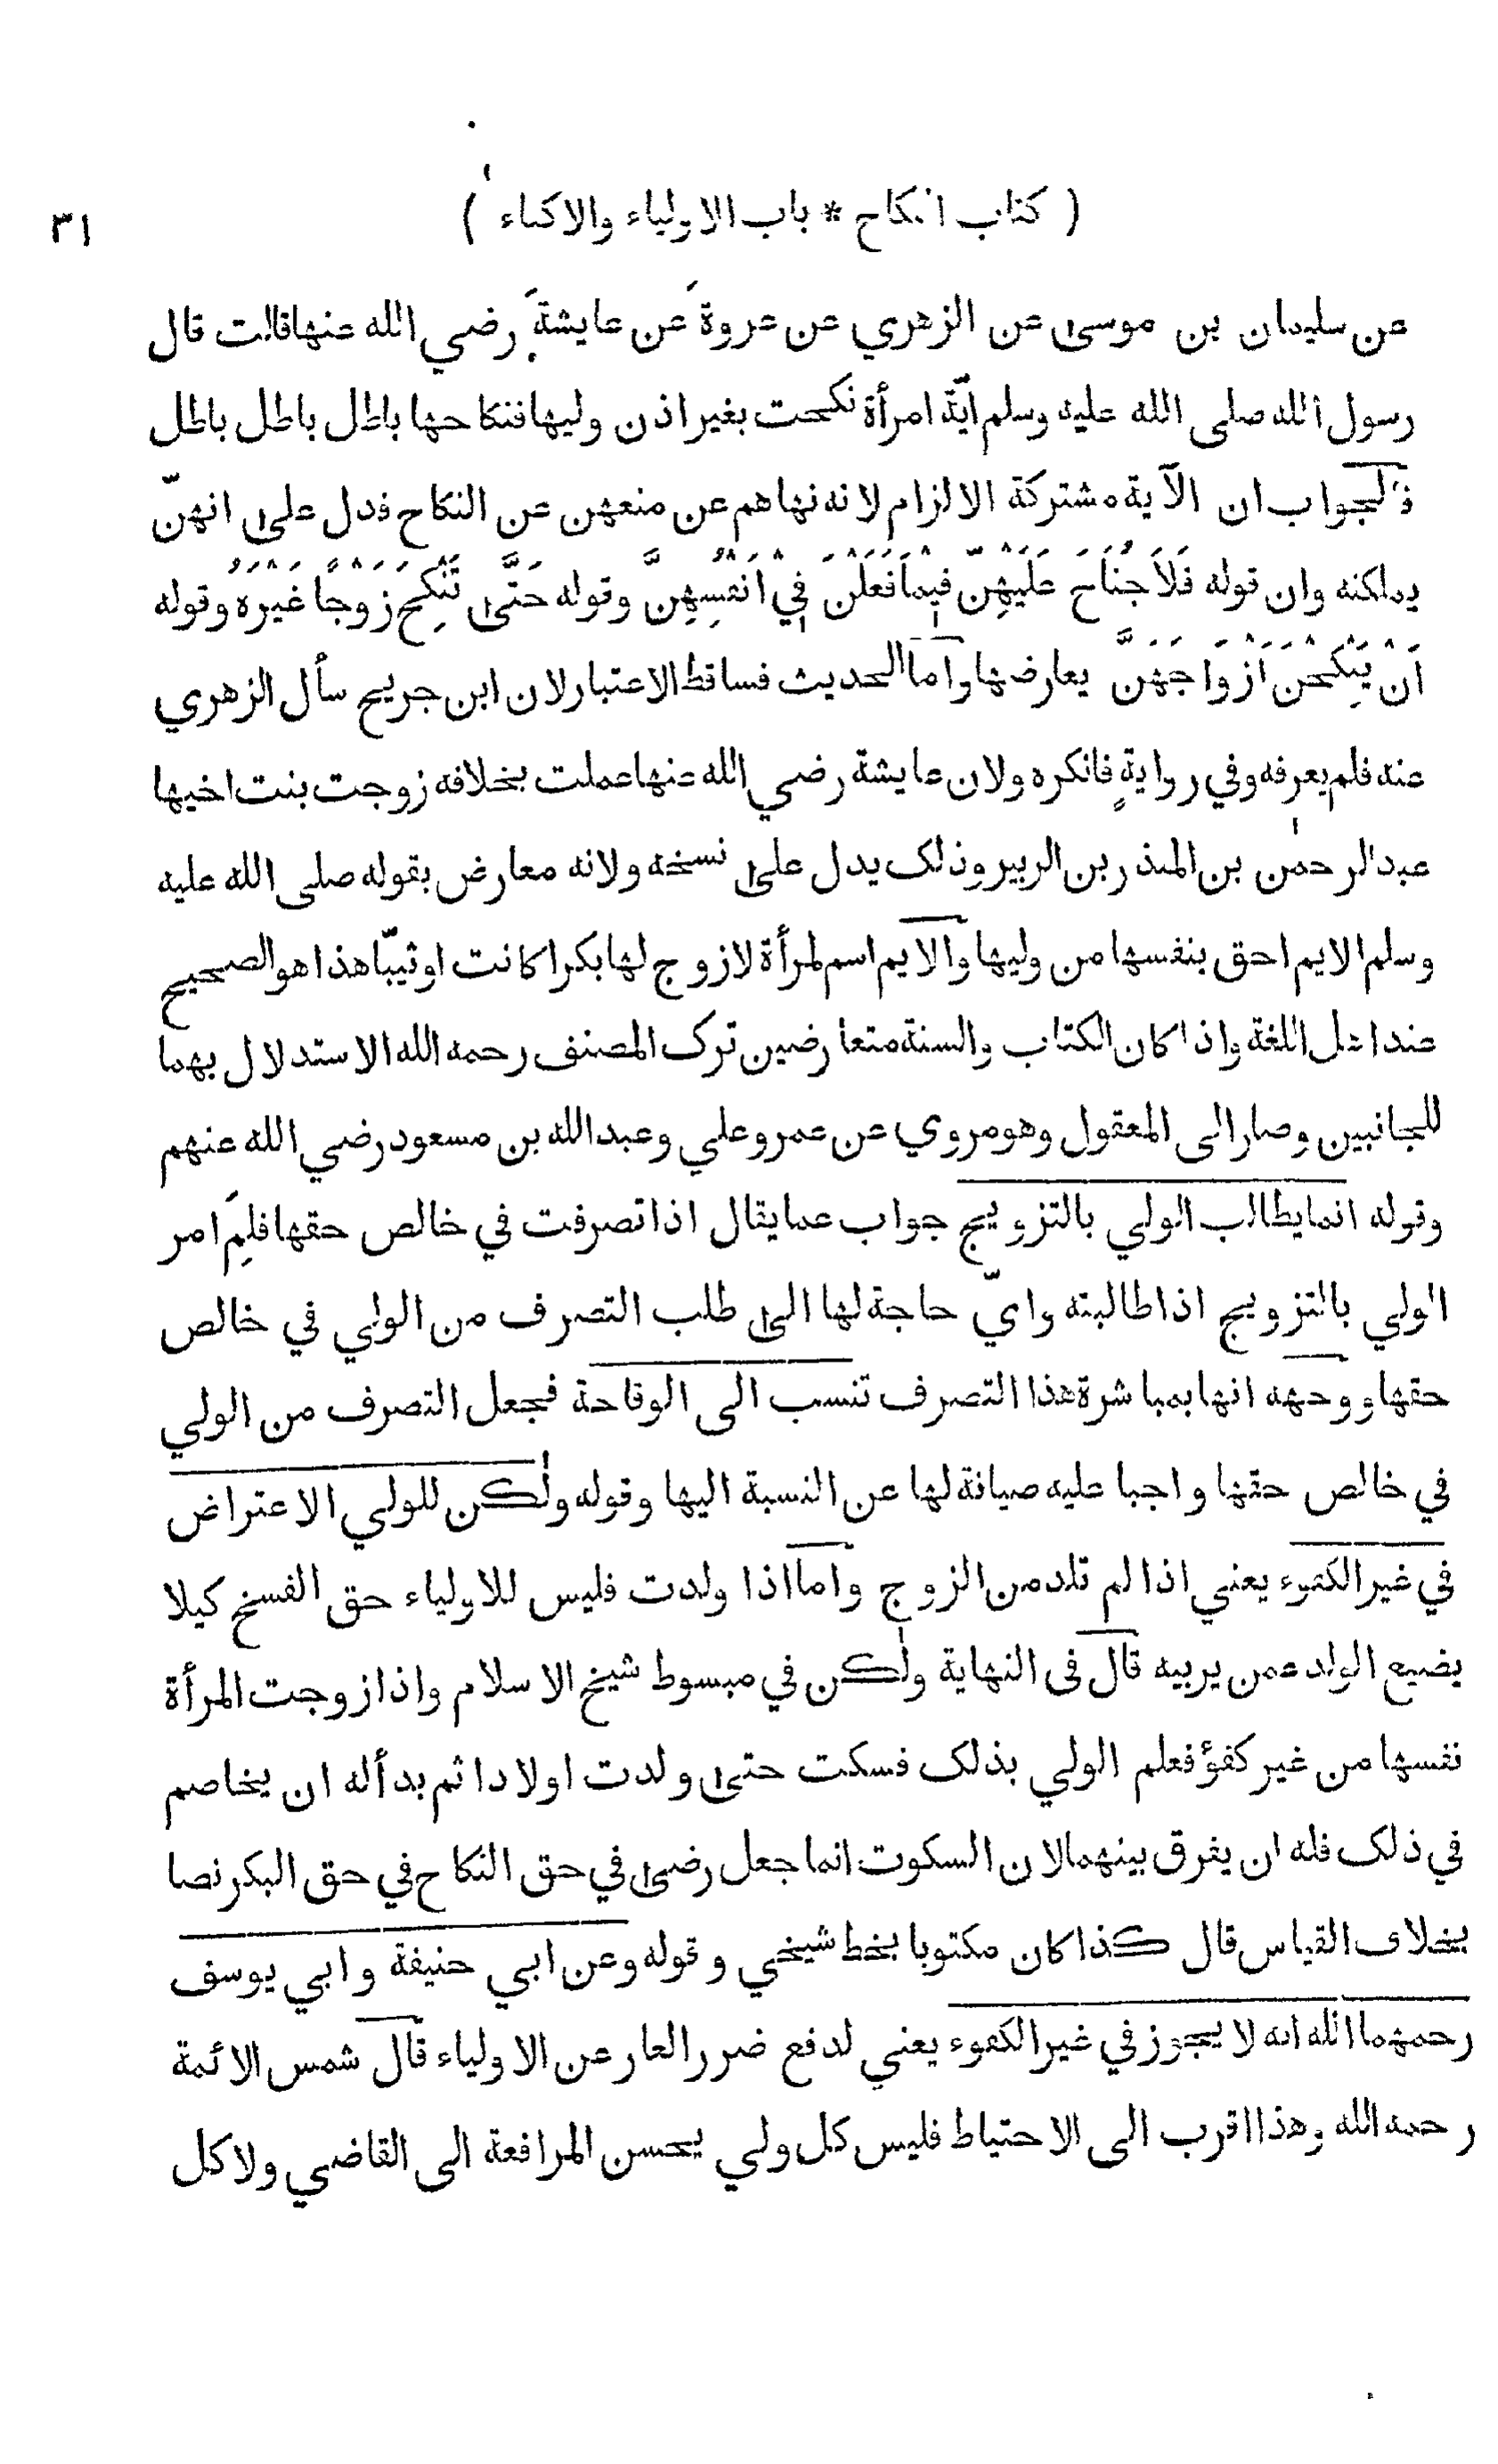 ( كتاب النكاح * باب الاولياء والاكفاء )
٣١
عن سليمان بن موسى عن الزهري عن عروة عن عايشة رضي الله عنها قالت قال
رسول الله صلى الله عليه وسلم ايّة امرأة نكحت بغير اذن وليها فنكاحها باطل باطل باطل
فالجواب ان الآية مشتركة الالزام لانه نهاهم عن منعهن عن النكاح فدل على انهنّ
يملكنه وان قوله فَلَا جُنَاحَ عَلَيْهِنّ فِيمَا فَعَلْنَ فِيْ اَنْفُسِهِنَّ وقوله حَتَّى تَنْكِحَ زَوْجًا غَيْرَهُ وقوله
اَنْ يَنْكِحْنَ اَزْوَاجَهَنَّ يعارضها واما الحديث فساقط الاعتبار لان ابن جريج سأل الزهري
عنه فلم يعرفه وفي روايةٍ فانكره ولان عايشة رضي الله عنها عملت بخلافه زوجت بنت اخيها
عبد الرحمن بن المنذر بن الزبير وذلك يدل على نسخه ولانه معارض بقوله صلى الله عليه
وسلم الايم احق بنفسها من وليها والايم اسم لمرأة لازوج لها بكرا كانت او ثيبّا هذا هو الصحيح
عند اهل اللغة واذا كان الكتاب والسنة متعارضين ترك المصنف رحمه الله الاستدلال بهما
للجانبين وصار الى المعقول وهو مروي عن عمر وعلي وعبد الله بن مسعود رضي الله عنهم
وقوله انما يطالب الولي بالتزويج جواب عما يقال اذا تصرفت في خالص حقها فلِمَ امر
الولي بالتزويج اذا طالبته وايّ حاجة لها الى طلب التصرف من الولي في خالص
حقها ووجهه انها بمباشرة هذا التصرف تنسب الى الوقاحة فجعل التصرف من الولي
في خالص حقها واجبا عليه صيانة لها عن النسبة اليها وقوله ولكن للولي الاعتراض
في غير الكفوء يعني اذا لم تلد من الزوج واما اذا ولدت فليس للاولياء حق الفسخ كيلا
يضيع الولد عمن يربيه قال فى النهاية ولكن في مبسوط شيخ الاسلام واذا زوجت المرأة
نفسها من غير كفؤ فعلم الولي بذلك فسكت حتى ولدت اولادا ثم بدأله ان يخاصم
في ذلك فله ان يفرق بينهما لان السكوت انما جعل رضى في حق النكاح في حق البكر نصا
بخلاف القياس قال كذا كان مكتوبا بخط شيخي وقوله وعن ابي حنيفة وابي يوسف
رحمهما الله انه لا يجوز في غير الكفوء يعني لدفع ضرر العار عن الاولياء قال شمس الائمة
رحمه الله وهذا اقرب الى الاحتياط فليس كل ولي يحسن المرافعة الى القاضي ولا كل